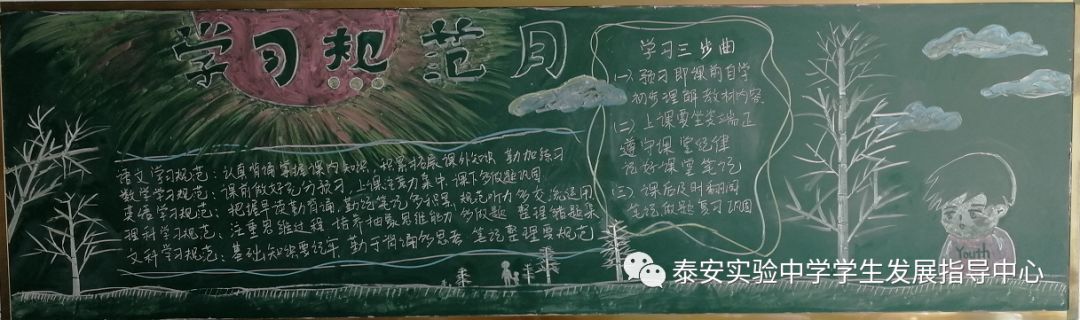 学习规范月
语文学习规范：认真背诵掌握课内知识，积累拓展课外知识 勤加练习
数学学习规范：课前做好充分预习，上课注意力集中，课下多做题巩固
英语学习规范：把握早读勤背诵，勤记笔记多积累 规范听力多交流运用
理科学习规范：注重思维过程 培养抽象思维能力 多做题 整理错题集
文科学习规范：基础知识要记牢，勤于背诵多思考 笔记整理要规范
学习三步曲
(一) 预习即课前自学
初步理解教材内容
(二) 上课要坐姿端正
遵守课堂纪律
记好课堂笔记
(三) 课后及时翻阅
笔记做题复习巩固
Youth
泰安实验中学学生发展指导中心